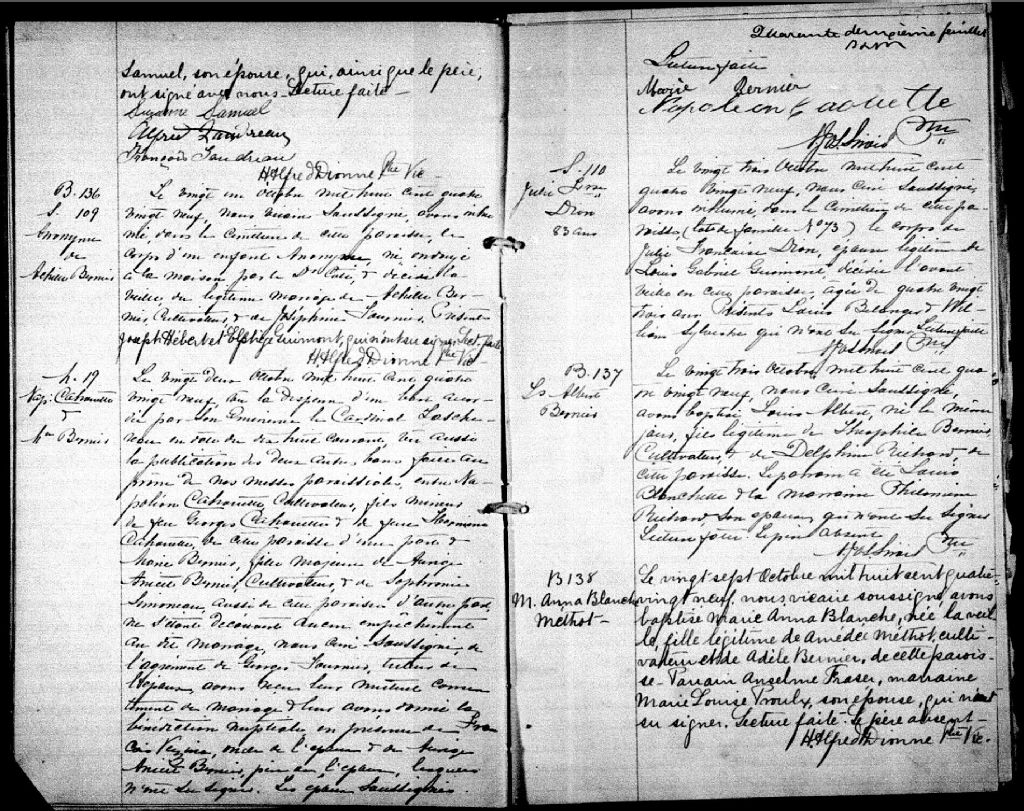 Samuel, son épouse, qui, ainsi que le père,
ont signé avec nous. Lecture faite
Suzanne Samuel
Alfred Gaudreau
François Gaudreau
H. Alfred Dionne Ptre Vic
B. 136
S. 109
Anonyme
de
Achille Bernier
Le vingt un Octobre mil huit cent quatre
vingt neuf, nous vicaire soussigné, avons inhu
mé, dans le cimetière de cette paroisse, le
corps d'un enfant Anonyme, né, ondoyé
à la maison par le Dr Coté, & décédé la
veille, du légitime mariage de Achille Ber-
nier, Cultivateur, & de Joséphine Fournier. Présents
Joseph Hébert et Elzéar Guimont, qui n'ont su signer. Lect. faite
H. Alfred Dionne Ptre Vic
M. 19
Nap. Cahouette
&
M. Bernier
Le vingt deux Octobre mil huit cent quatre
vingt neuf, vu la dispense d'un ban accor-
dée par Son Eminence le Cardinal Tasche-
reau en date du dix huit courant, vu aussi
la publication des deux autres bans faite au
prône de nos messes paroissiales, entre Na-
poléon Cahouette, Cultivateur, fils mineur
de feu Georges Cahouette & de feue
Cahouette, de cette paroisse d'une part &
Marie Bernier, fille majeure de
Bernier, Cultivateur, & de Sophronie
aussi de cette paroisse d'autre part
ne s'étant découvert aucun empêchement
au dit mariage, nous curé soussigné, de
l'agrément de Georges Fournier, tuteur de
l'époux, avons reçu leur mutuel consen
tement de mariage & leur avons donné la
bénédiction nuptiale en présence de Fran
çois Vézina, oncle de l'époux & de
Bernier, père de l'épouse, lesquels
n'ont su signer. Les époux soussignés.
Quarante deuxième feuillet
Lecture faite
Marie Bernier
Napoléon Caouette
Ptre
S. 110
Julie Frse
Dion
83 ans
Le vingt trois Octobre mil huit cent
quatre vingt neuf, nous Curé soussigné,
avons inhumé, dans le Cimetière de cette pa-
roisse (lot de famille No 73) le corps de
Julie Françoise Dion, épouse légitime de
Louis Gabriel Guimont, décédée l'avant
veille en cette paroisse, agée de quatre vingt
trois ans. Présents Louis Bélanger & Wil-
liam Sylvestre qui n'ont su signer. Lecture faite
Ptre
B. 137
Ls Albert
Bernier
Le vingt trois Octobre mil huit cent qua
tre vingt neuf, nous Curé soussigné,
avons baptisé Louis Albert, né le même
jour, fils légitime de Théophile Bernier,
Cultivateur, & de Delphine Richard, de
cette paroisse. Le parrain a été Louis
Blanchette & la marraine Philomène
Richard, son épouse, qui n'ont su signer
Lecture faite. Le père absent
Ptre
B 138
M. Anna Blanche
Méthot
Le vingt sept Octobre mil huit cent quatre-
vingt neuf, nous, vicaire soussigné avons
baptisé Marie Anna Blanche, née la veil
le, fille légitime de Amédée Méthot, culti-
vateur et de Adèle Bernier, de cette parois-
se - Parrain Anselme Fraser, marraine
Marie Louise Proulx, son épouse, qui n'ont
su signer. Lecture faite. le père absent -
H. Alfred Dionne Ptre Vic.